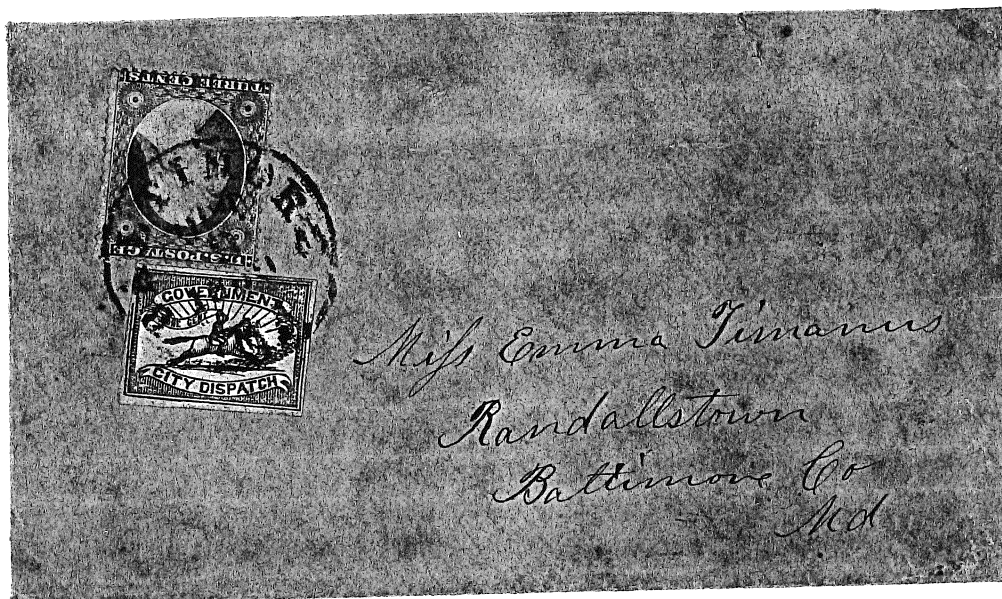 THREE CENTS
U.S. POSTAGE
GOVERNMENT
ONE CENT
CITY DISPATCH
Miss Emma Timanus
Randallstown
Baltimore Co
Md